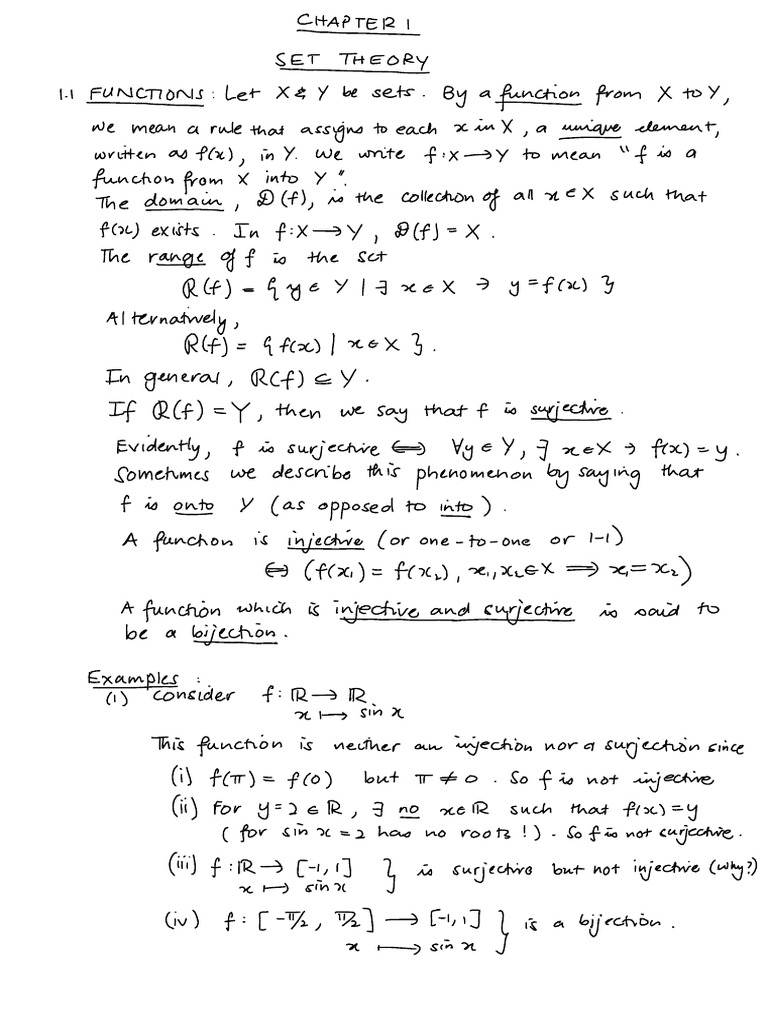 CHAPTER 1
SET THEORY
1.1 FUNCTIONS: Let X & Y be sets. By a function from X to Y,
we mean a rule that assigns to each x in X, a unique element,
written as f(x), in Y. We write f: X → Y to mean "f is a
function from X into Y".
The domain, D(f), is the collection of all x ∈ X such that
f(x) exists. In f: X → Y, D(f) = X.
The range of f is the set
R(f) = { y ∈ Y | ∃ x ∈ X → y = f(x) }
Alternatively,
R(f) = { f(x) | x ∈ X }.
In general, R(f) ⊆ Y.
If R(f) = Y, then we say that f is surjective.
Evidently, f is surjective ⟺ ∀y ∈ Y, ∃ x ∈ X → f(x) = y.
Sometimes we describe this phenomenon by saying that
f is onto Y (as opposed to into).
A function is injective (or one-to-one or 1-1)
⟺ (f(x₁) = f(x₂), x₁, x₂ ∈ X ⟹ x₁ = x₂)
A function which is injective and surjective is said to
be a bijection.
Examples:
(1) Consider f: ℝ → ℝ
x ↦ sin x
This function is neither an injection nor a surjection since
(i) f(π) = f(0) but π ≠ 0. So f is not injective
(ii) For y = 2 ∈ ℝ, ∃ no x ∈ ℝ such that f(x) = y
(for sin x = 2 has no roots!). So f is not surjective.
(iii) f: ℝ → [-1, 1] } is surjective but not injective (why?)
x ↦ sin x
(iv) f: [-π/2, π/2] → [-1, 1] } is a bijection.
x ↦ sin x